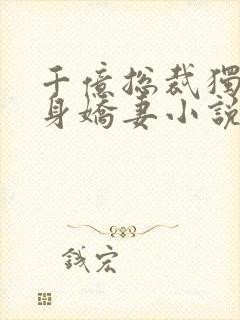 千億總裁獨
身嬌妻小說
錢宏